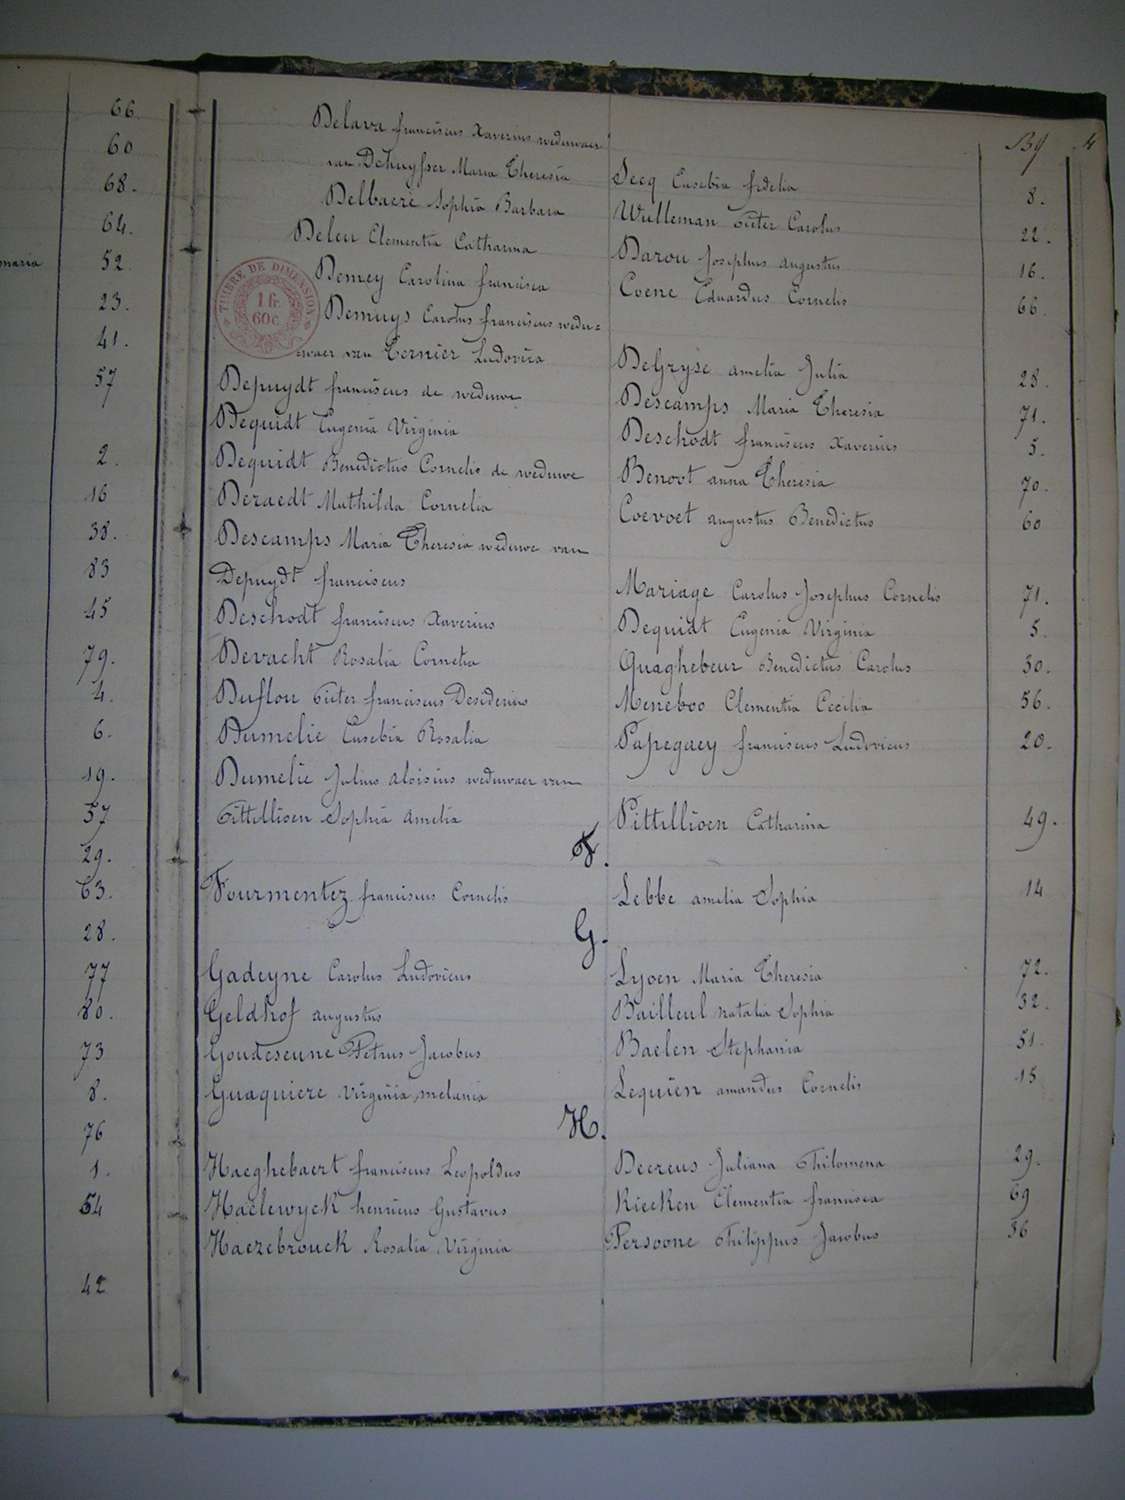 66
60
68.
64.
maria 52.
23.
41.
57
2.
16
38.
83
45
79.
4.
6.
19.
57
29.
63.
28.
77
80.
73
8.
76
1.
54
42
4
Delava franciscus Xaverius weduwaer
van Dehuysser Maria Theresia Secq Eusebia fidelia 8.
Delbaere Sophia Barbara Wulleman Pieter Carolus 22.
Deleu Clementia Catharina Darou Josephus augustus 16.
Demey Carolina francisca Coene Eduardus Cornelis 66.
Demuys Carolus franciscus wedu=
waer van Ternier Ludovica DeGryse amelia Julia 28.
Depuydt franciscus de weduwe Descamps Maria Theresia 71.
Dequidt Eugenia Virginia Deschodt franciscus Xaverius 5.
Dequidt Benedictus Cornelis de weduwe Benoot anna Theresia 70.
Deraedt Mathilda Cornelia Coevoet augustus Benedictus 60
Descamps Maria Theresia weduwe van
Depuydt franciscus Mariage Carolus Josephus Cornelis 71.
Deschodt franciscus Xaverius Dequidt Eugenia Virginia 5.
Devacht Rosalia Cornelia Quaghebeur Benedictus Carolus 30.
Duflou Pieter franciscus Desiderius Meneboo Clementia Cecilia 56.
Dumelie Eusebia Rosalia Papegaey franciscus Ludovicus 20.
Dumelie Julius aloisius weduwaer van
Pittillioen Sophia amelia Pittillioen Catharina 49.
F.
Fourmentez franciscus Cornelis Lebbe amelia Sophia 14
G.
Gadeyne Carolus Ludovicus Lyoen Maria Theresia 72.
Geldhof augustus Bailleul natalia Sophia 32.
Goudeseune Petrus Jacobus Baelen Stephania 51.
Guaquiere Virginia melania Lequien amandus Cornelis 15
H.
Haeghebaert franciscus Leopoldus Decreus Juliana Philomena 29.
Haelewyck henricus Gustavus Riecken Clementia francisca 69
Haezebrouck Rosalia Virginia Persoone Philippus Jacobus 36
TIMBRE DE DIMENSION
1 fr.
60 c.